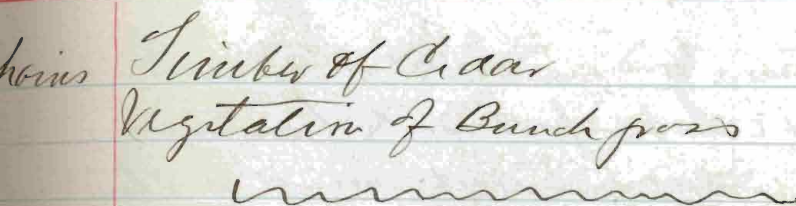 hains Timber of Cedar
Vegetation of Bunch grass